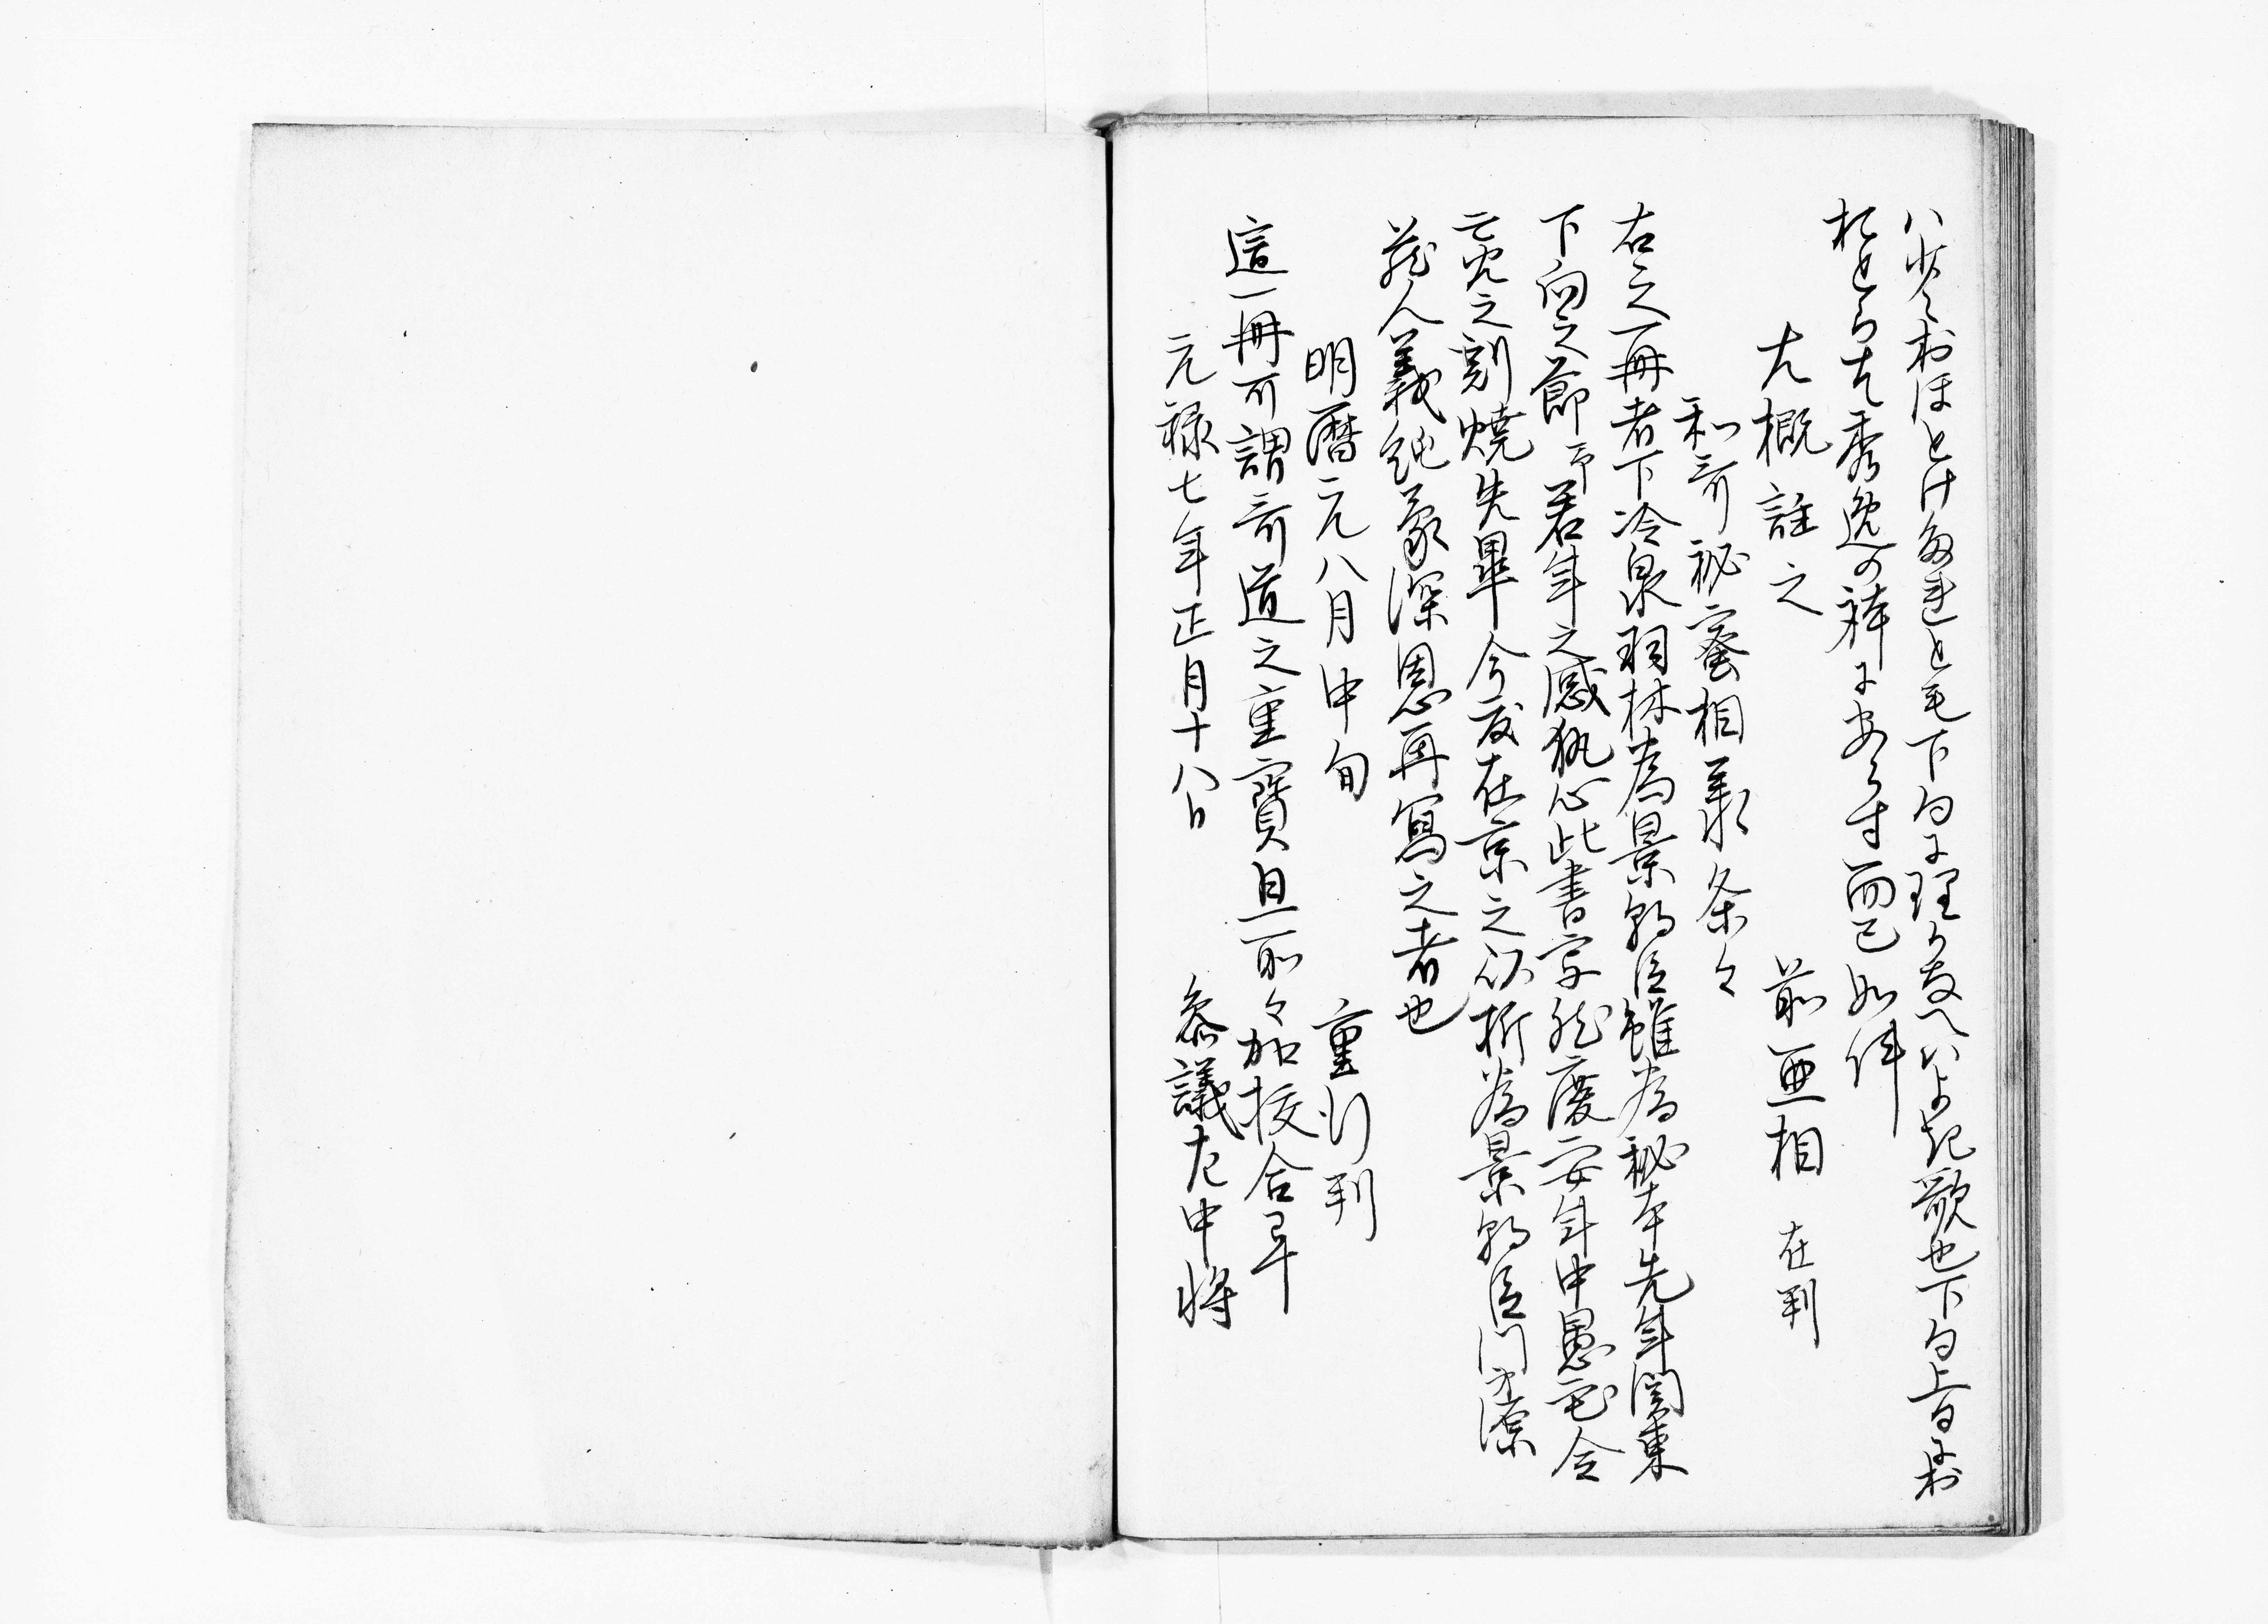 ハ少々おほとけたれとも下句に理をそへハよき歌也下句上句にお
おとらす秀逸の躰にあらす而已如件
大概註之　前亜相　在判
和哥秘蜜相承条々
右之一冊者下冷泉羽林為景朝臣雖為秘本先年関東
下向之節予若年之感執心此書写然慶安年中愚宅令
之刻焼失畢今度在京之砌為景朝臣門弟源
蔵人義純蒙深恩再写之者也
明暦元八月中旬　重 判
這一冊可謂哥道之重寳且而々加校合畢
元禄七年正月十八日　参議左中将